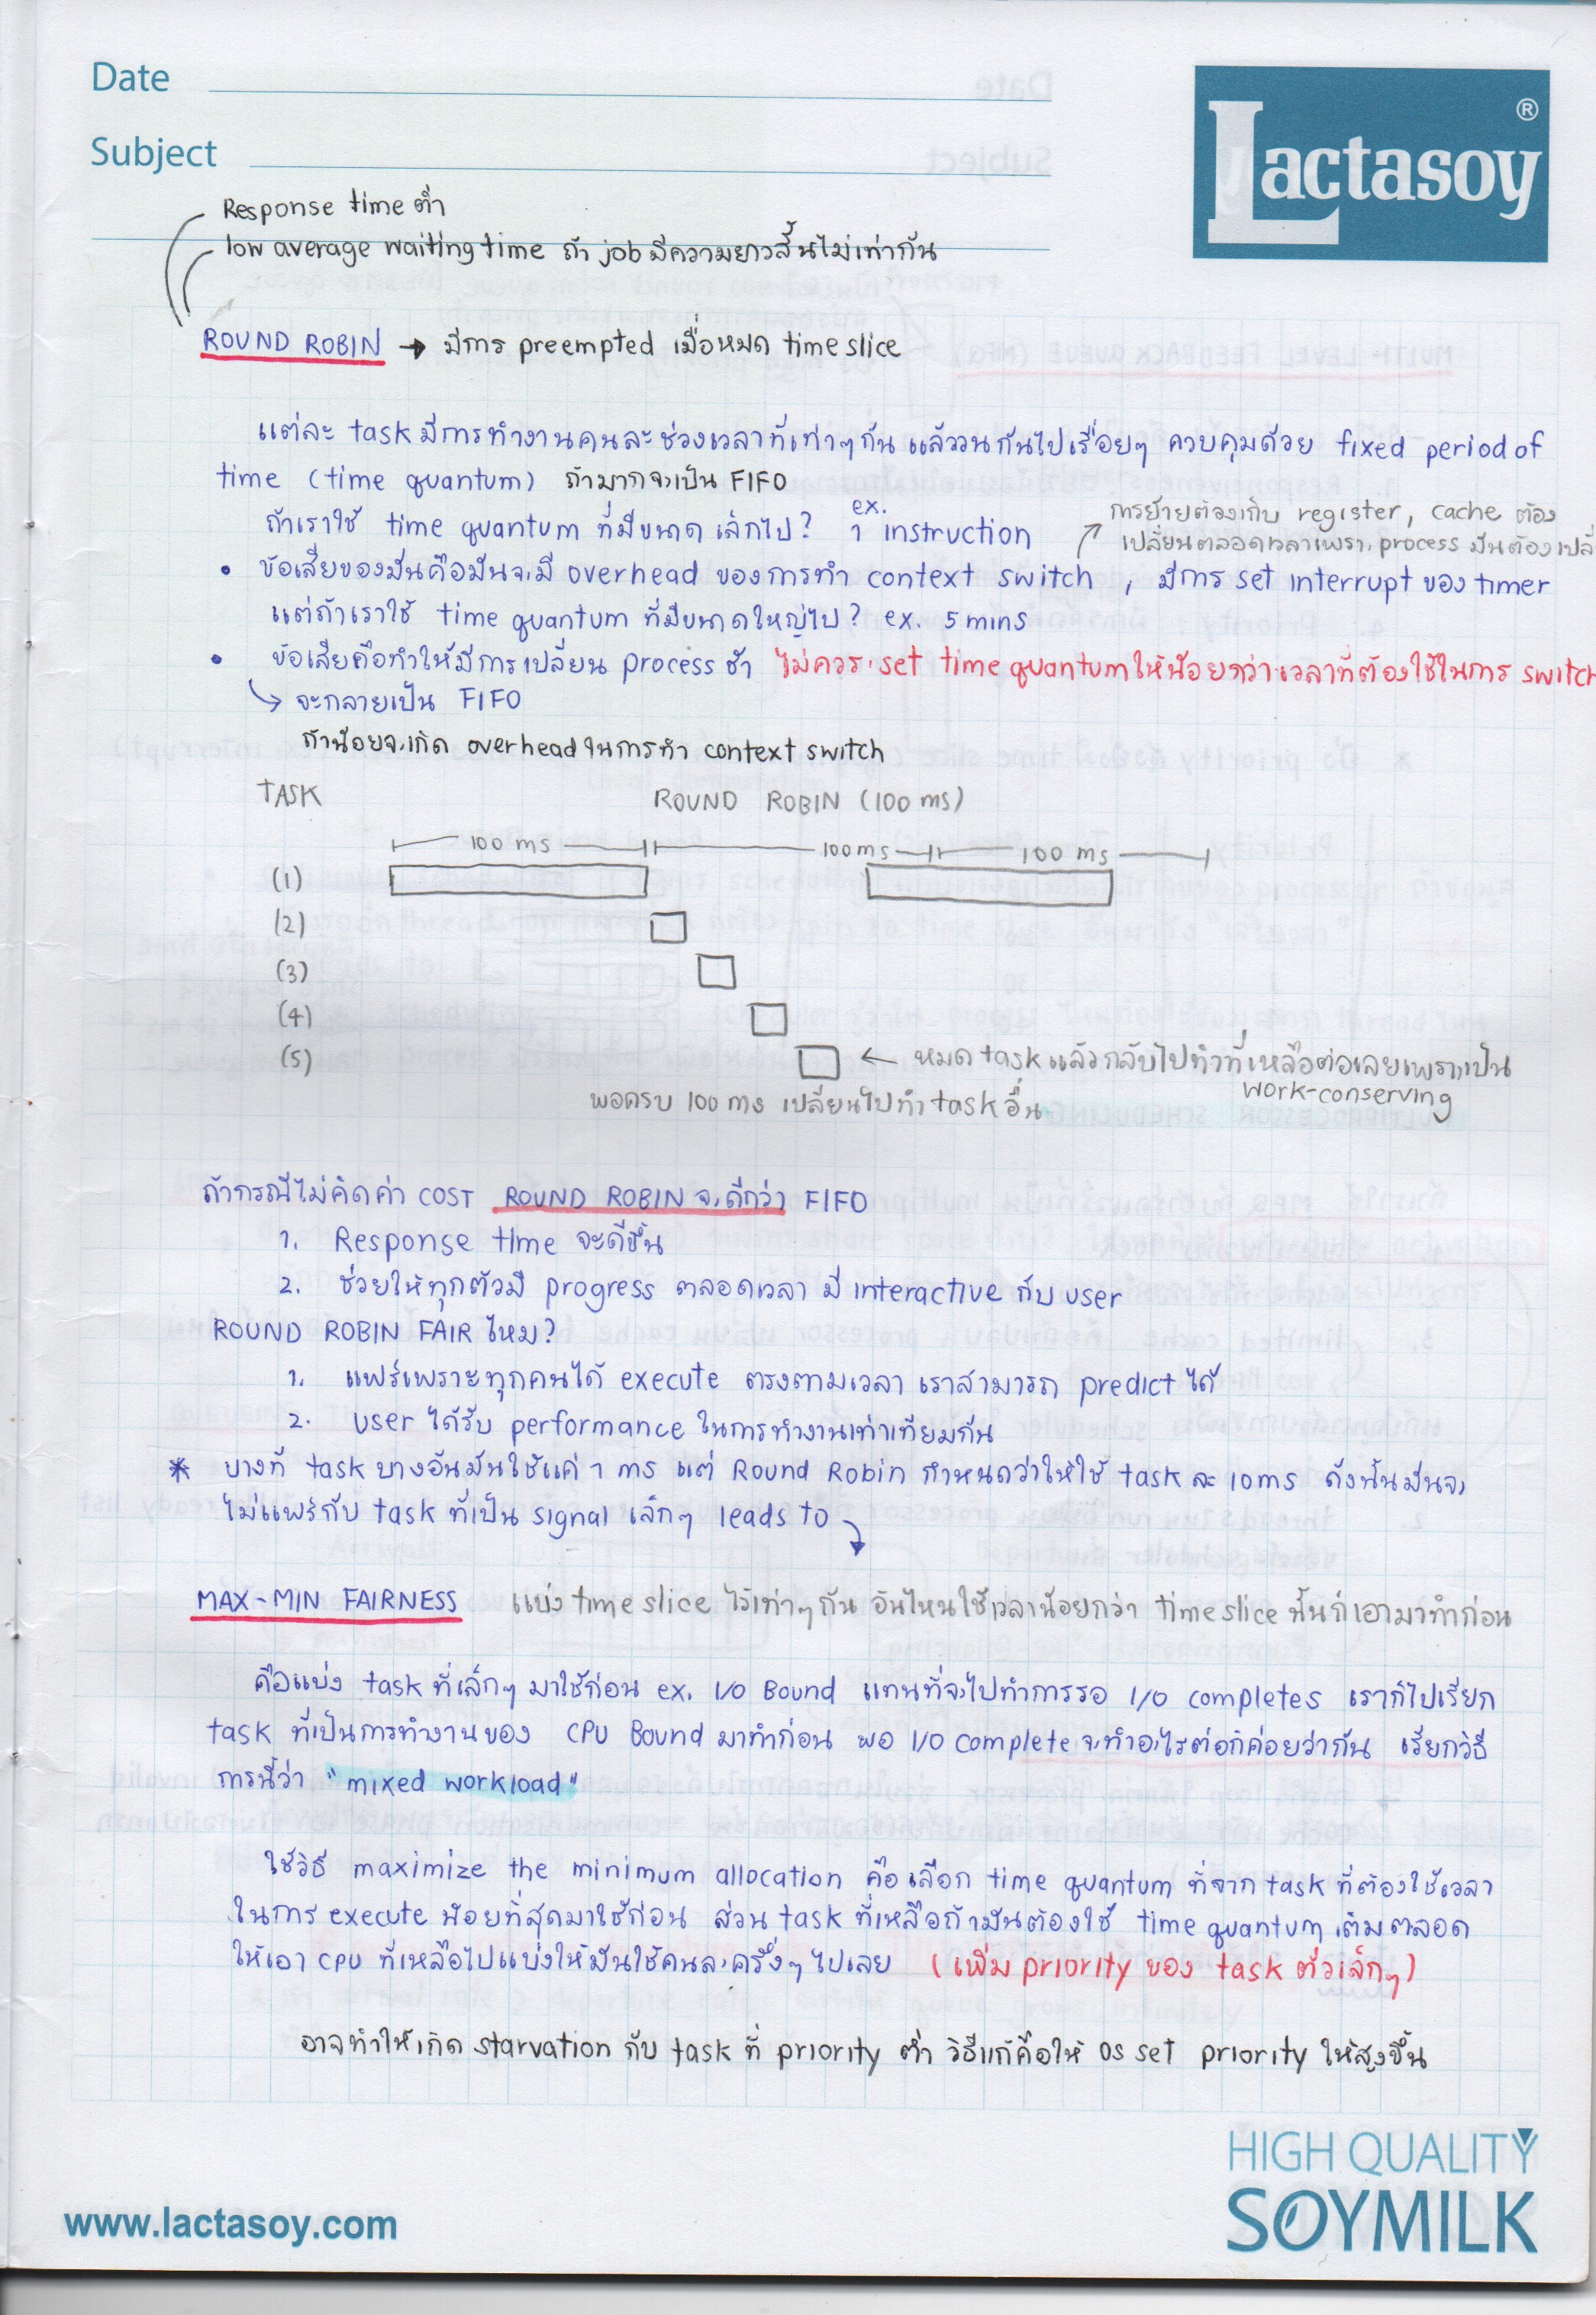 Date
Subject
Lactasoy ®
Response time ต่ำ
low average waiting time ถ้า job มีความยาวสั้นไม่เท่ากัน
ROUND ROBIN → มีการ preempted เมื่อหมด time slice
แต่ละ task มีการทำงานคนละช่วงเวลาที่เท่าๆกัน แล้ววนกันไปเรื่อยๆ ควบคุมด้วย fixed period of
time (time quantum) ถ้ามากจะเป็น FIFO
ถ้าเราใช้ time quantum ที่มีขนาดเล็กไป? ex. 1 instruction
การย้ายต้องเก็บ register, cache ต้อง
เปลี่ยนตลอดเวลาเพราะ process มันต้องเปลี่
• ข้อเสียของมันคือมันจะมี overhead ของการทำ context switch , มีการ set interrupt ของ timer
แต่ถ้าเราใช้ time quantum ที่มีขนาดใหญ่ไป? ex. 5 mins
• ข้อเสียคือทำให้มีการเปลี่ยน process ช้า ไม่ควรจะ set time quantum ให้น้อยกว่าเวลาที่ต้องใช้ในการ switch
↳ จะกลายเป็น FIFO
ถ้าน้อยจะเกิด overhead ในการทำ context switch
TASK ROUND ROBIN (100 ms)
100 ms 100 ms 100 ms
(1)
(2)
(3)
(4)
(5) ← หมด task แล้วกลับไปทำที่เหลือต่อเลยเพราะเป็น
work-conserving
พอครบ 100 ms เปลี่ยนไปทำ task อื่น
ถ้ากรณีไม่คิดค่า COST ROUND ROBIN จะดีกว่า FIFO
1. Response time จะดีขึ้น
2. ช่วยให้ทุกตัวมี progress ตลอดเวลา มี interactive กับ user
ROUND ROBIN FAIR ไหม?
1. แฟร์เพราะทุกคนได้ execute ตรงตามเวลา เราสามารถ predict ได้
2. user ได้รับ performance ในการทำงานเท่าเทียมกัน
* บางที task บางอันมันใช้แค่ 1 ms แต่ Round Robin กำหนดว่าให้ใช้ task ละ 10 ms ดังนั้นมันจะ
ไม่แฟร์กับ task ที่เป็น signal เล็กๆ leads to
MAX-MIN FAIRNESS แบ่ง time slice ไว้เท่าๆกัน อันไหนใช้เวลาน้อยกว่า time slice นั้นก็เอามาทำก่อน
คือแบ่ง task ที่เล็กๆ มาใช้ก่อน ex. I/O Bound แทนที่จะไปทำการรอ I/O completes เราก็ไปเรียก
task ที่เป็นการทำงานของ CPU Bound มาทำก่อน พอ I/O complete จะทำอะไรต่อก็ค่อยว่ากัน เรียกวิธี
การนี้ว่า "mixed workload"
ใช้วิธี maximize the minimum allocation คือ เลือก time quantum ที่จาก task ที่ต้องใช้เวลา
ในการ execute น้อยที่สุดมาใช้ก่อน ส่วน task ที่เหลือถ้ามันต้องใช้ time quantum เต็มตลอด
ให้เอา CPU ที่เหลือไปแบ่งให้มันใช้คนละครึ่งๆ ไปเลย (เพิ่ม priority ของ task ตัวเล็กๆ)
อาจทำให้เกิด starvation กับ task ที่ priority ต่ำ วิธีแก้คือให้ OS set priority ให้สูงขึ้น
HIGH QUALITY
SOYMILK
www.lactasoy.com